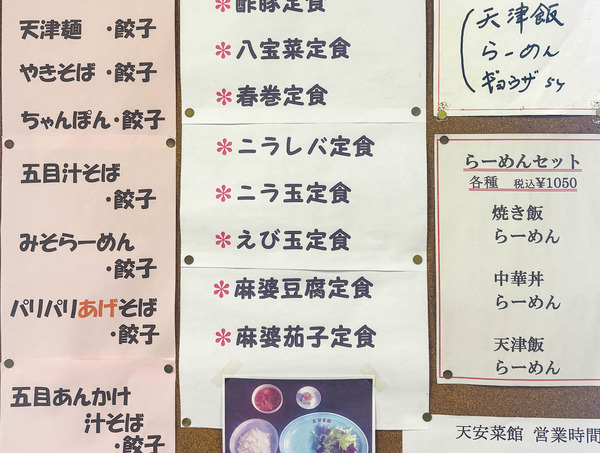 天津麺・餃子
やきそば・餃子
ちゃんぽん・餃子
五目汁そば
・餃子
みそらーめん
・餃子
パリパリあげそば
・餃子
五目あんかけ
汁そば
・餃子
*酢豚定食
*八宝菜定食
*春巻定食
*ニラレバ定食
*ニラ玉定食
*えび玉定食
*麻婆豆腐定食
*麻婆茄子定食
天安菜館
天津飯
らーめん
ギョウザ 5ケ
らーめんセット
各種 税込¥1050
焼き飯
らーめん
中華丼
らーめん
天津飯
らーめん
天安菜館 営業時間